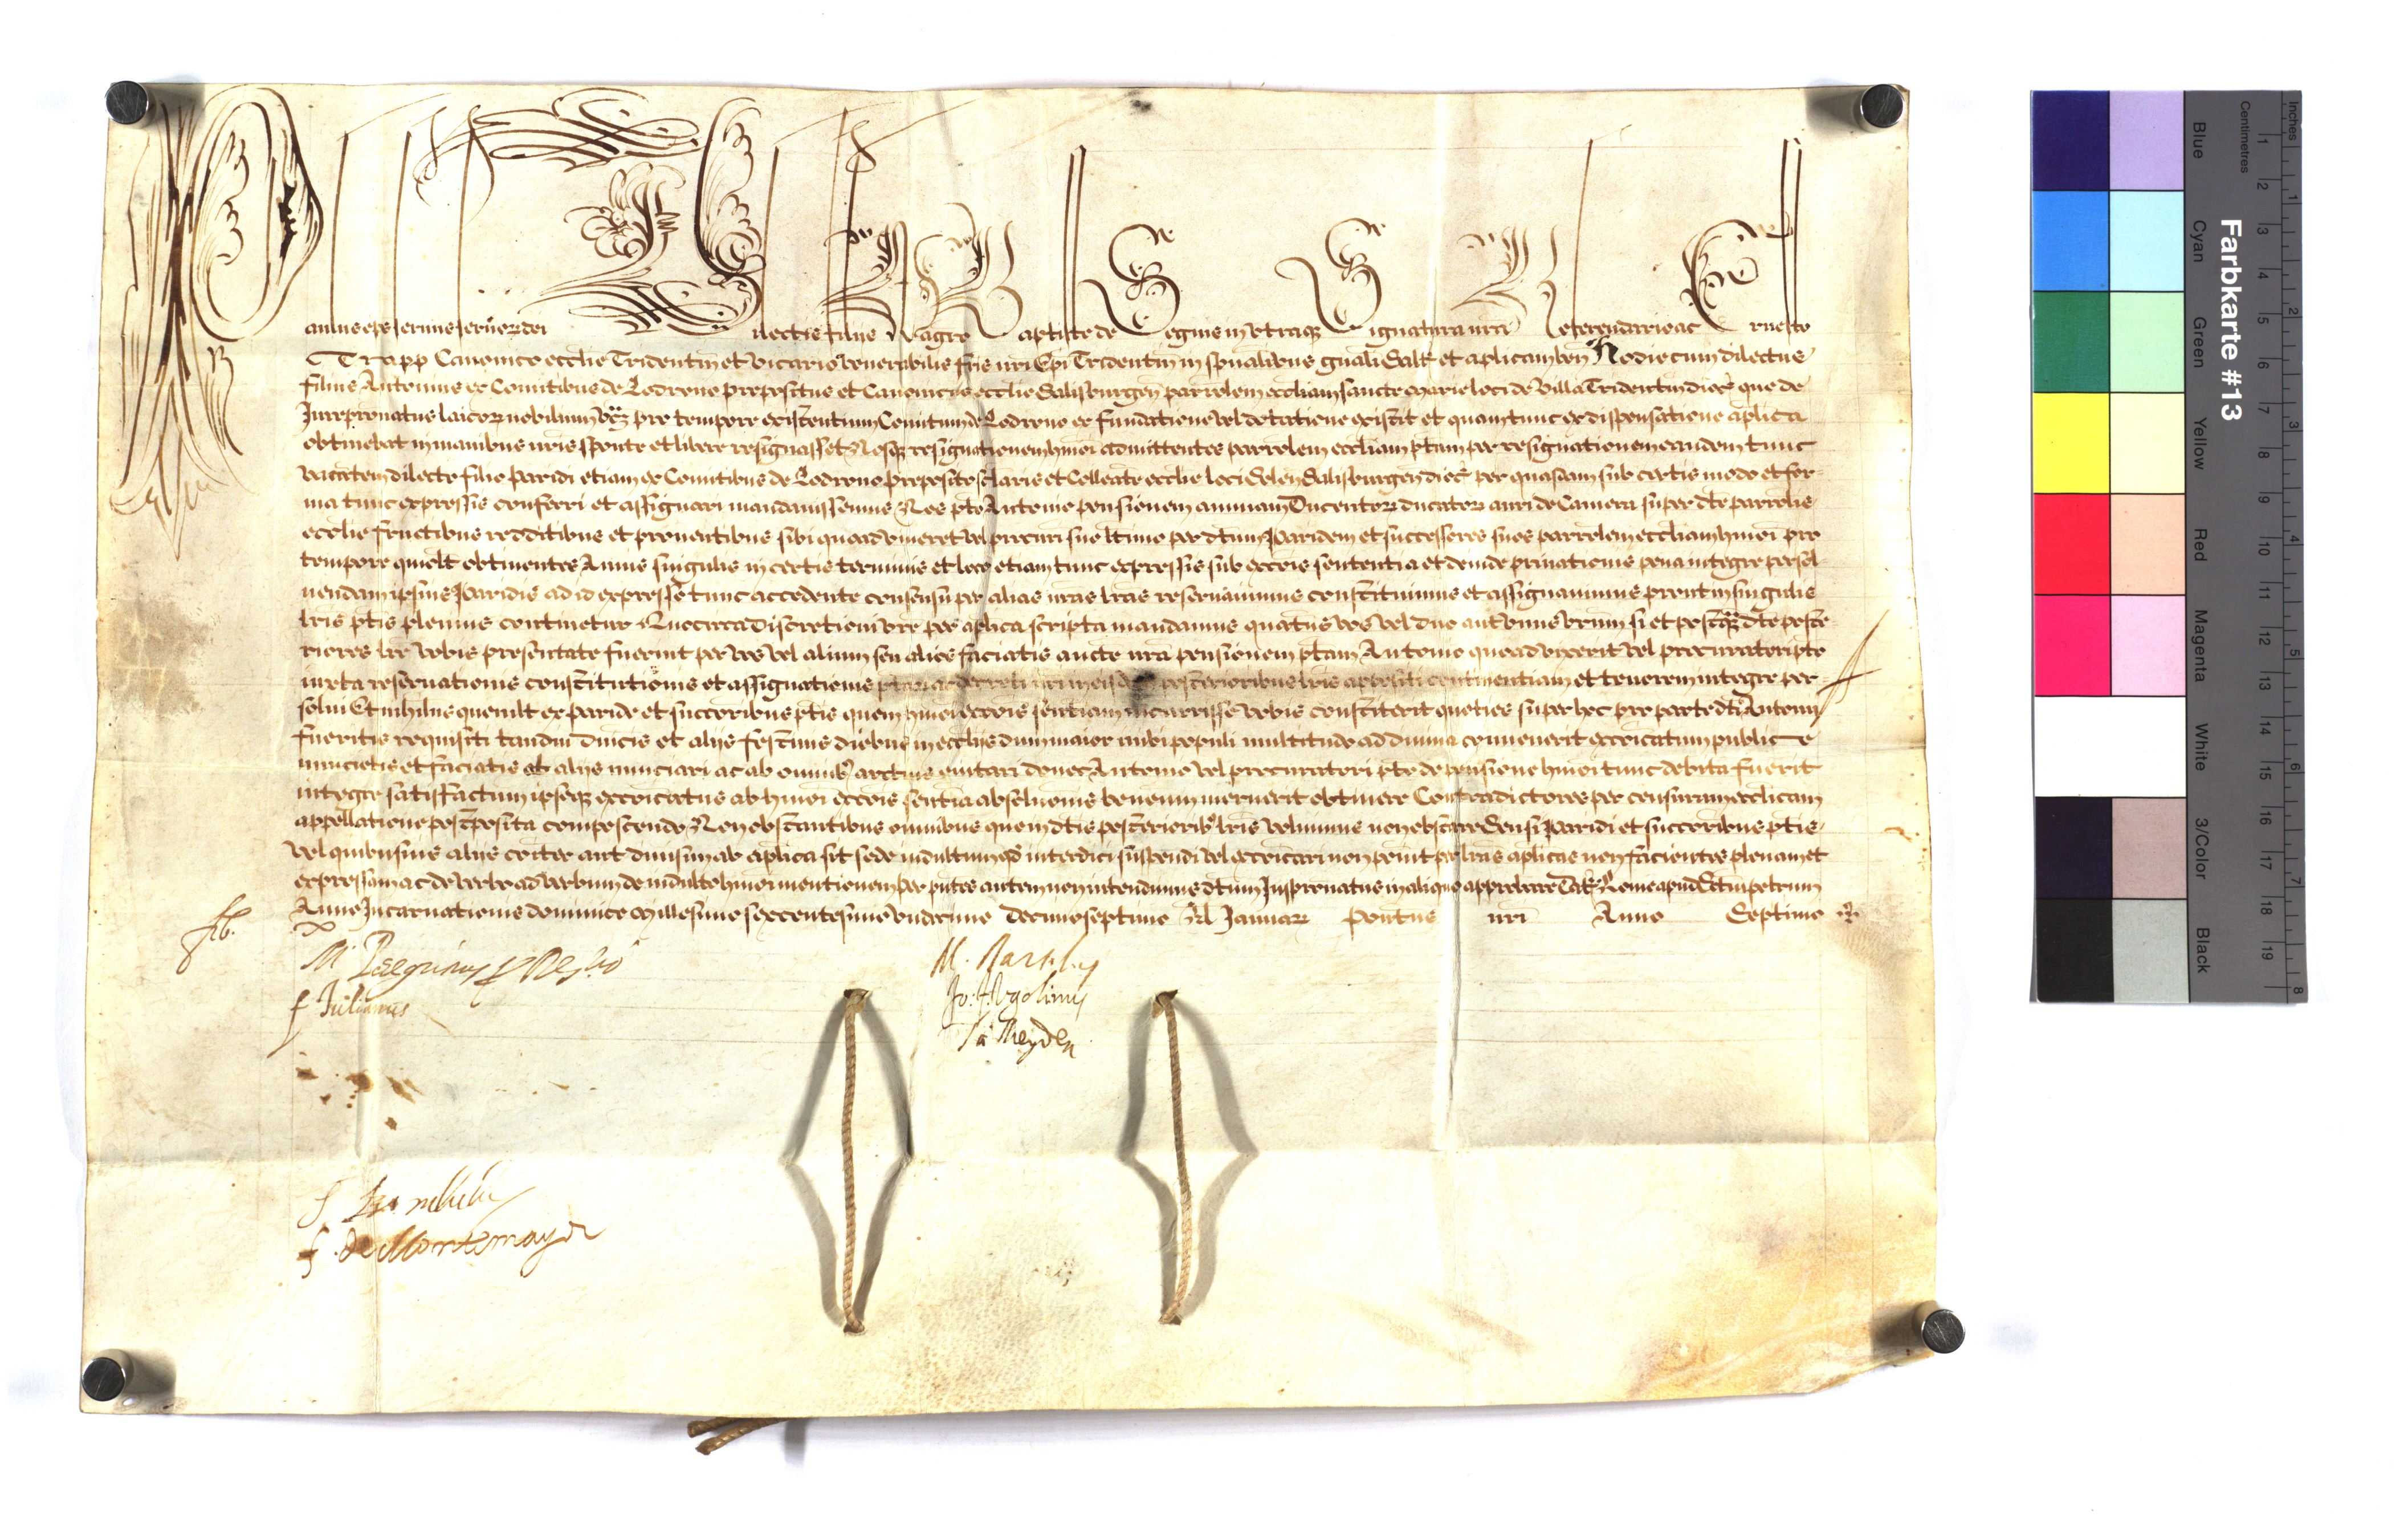 aulus eps seruus seruor dei ilectis filiis Magro aptiste de egniis in vtraque ignatura nra eferendario ac rnesto
Trapp Canonico ecclie Tridentin et vicario venerabilis fris nri Epi Tridentin in spualibus gnali Salt et aplicam ben Hodie cum dilectus
filius Antonius ex Comitibus de Lodrono prepositus et Canonicus ecclie Salisburgen parrolem eccliam sancte Marie loci de Villa Tridentin dioc que de
Iurepronatus laicor nobilium pro tempore existentium Comitum de Lodrono ex fundatione vel dotatione existit et quam tunc ex dispensatione aplica
obtinebat in manibus nris sponte et libere resignasset Nosque resignationem hmoi admittentes parrolem eccliam ptam per resignationem eandem tunc
vacantem dilecto filio Paridi etiam ex Comitibus de Lodrono preposito sclaris et Colleate ecclie loci Salisburgen dioc per quasdam sub certis modo et for-
ma tunc expressis conferri et assignari mandauissemus Nos pto Antonio pensionem annuam Ducentor ducator auri de Camera super dte parrolis
ecclie fructibus redditibus et prouentibus sibi quoad viueret vel procuri suo ltimo per dtum Paridem et successores suos parrolem eccliam hmoi pro
tempore quolt obtinentes Annis singulis in certis terminis et loco etiam tunc expressis sub excois sententia et deinde priuationis pena integre persol-
uendam ipsius Paridis ad id expresso tunc accedente consensu per alias nras lras reseruauimus constituimus et assignauimus prout in singulis
lris ptis plenius continetur Quocirca Discretioni vre per aplica scripta mandamus quatus vos vel duo aut vnus vrum si et postquam dte poste-
riores lre vobis presentate fuerint per vos vel alium seu alios faciatis aucte nra pensionem ptam Antonio quoad vixerit vel procuratori pto
iuxta reseruationis constitutionis et assignationis ptar ac decreti nri in eisdem posterioribus lris appositi continentiam et tenorem integre per-
solui Et nihilus quemlt ex Paride et succoribus ptis quem hmoi excois sentiam incurrisse vobis constiterit quoties super hoc pro parte dti Antonii
fueritis requisiti tandiu Dnicis et aliis festiuis diebus in eccliis dum maior inibi populi multitudo ad diuina conuenerit excoicatum publice
nuncietis et faciatis ab aliis nunciari ac ab omnib arctius euitari donec Antonio vel procuratori pto de pensione hmoi tunc debita fuerit
integre satisfactum ipseque excoicatus ab hmoi excois sentia absolutionis beneum meruerit obtinere Contradictores per censuram ecclicam
appellatione postposita compescendo Non obstantibus omnibus que in dtis posteriorib lris volumus non obstare Seu si Paridi et succoribus ptis
vel quibusuis aliis coiter aut diuisim ab aplica sit sede indultum qd interdici suspendi vel excoicari non possint per lras aplicas non facientes plenam et
expressam ac de verbo ad verbum de indulto hmoi mentionem Per pntes autem non intendimus dtum Iuspronatus in aliquo approbare Dat Rome apud Sctum petrum
Anno Incarnationis dominice Millesimo sexcentesimo vndecimo Decimoseptimo Kl Januar Pontus nri Anno Septimo
M Peregrinus
f Julianus
M.
Jo: F. Vgolinus
a Meyden
f de Montemayor
Farbkarte #13
Blue Cyan Green Yellow Red Magenta White 3/Color Black
Inches 1 2 3 4 5 6 7 8
Centimetres 1 2 3 4 5 6 7 8 9 10 11 12 13 14 15 16 17 18 19